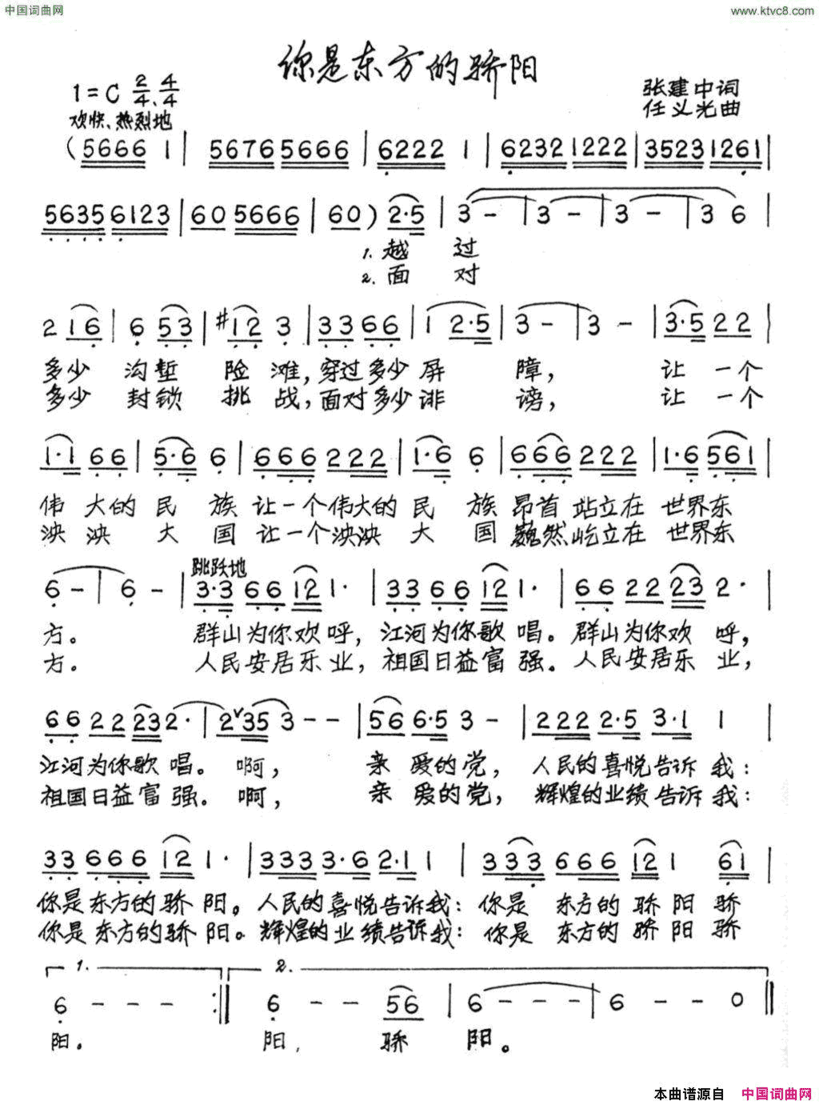 中国词曲网
www.ktvc8.com
你是东方的骄阳
1=C 2/4、4/4
张建中词
欢快、热烈地
任义光曲
(5666 1 | 5676 5666 | 6222 1 | 6232 1222 | 3523 1261 |
5635 6123 | 60 5666 | 60) 2·5 | 3 - | 3 - | 3 - | 3 6 |
1. 越过
2. 面对
2 16 | 6 53 | #12 3 | 33 66 | 1 2·5 | 3 - | 3 - | 3·5 22 |
多少 沟堑 险滩,穿过多少屏 障, 让一个
多少 封锁 挑战,面对多少诽 谤, 让一个
1·1 66 | 5·6 6 | 666 222 | 1·6 6 | 666 222 | 1·6 561 |
伟大的 民族 让一个伟大的 民族 昂首站立在 世界东
泱泱 大国 让一个泱泱 大国 巍然屹立在 世界东
跳跃地
6 - | 6 - | 3·3 66 12 1· | 33 66 12 1· | 66 22 23 2· |
方。 群山为你欢呼,江河为你歌唱。群山为你欢呼,
方。 人民安居乐业,祖国日益富强。人民安居乐业,
66 22 23 2· | 2√35 3 - - | 56 6·5 3 - | 222 2·5 3·1 1 |
江河为你歌唱。啊, 亲爱的党, 人民的喜悦告诉我:
祖国日益富强。啊, 亲爱的党, 辉煌的业绩告诉我:
33 666 12 1· | 333 3·6 2·1 1 | 333 666 12 1 61 |
你是东方的骄阳。人民的喜悦告诉我:你是 东方的骄阳 骄
你是东方的骄阳。辉煌的业绩告诉我:你是 东方的骄阳 骄
1. 2.
6 - - - :|| 6 - - 56 | 6 - - - | 6 - - 0 ||
阳。 阳, 骄 阳。
本曲谱源自 中国词曲网